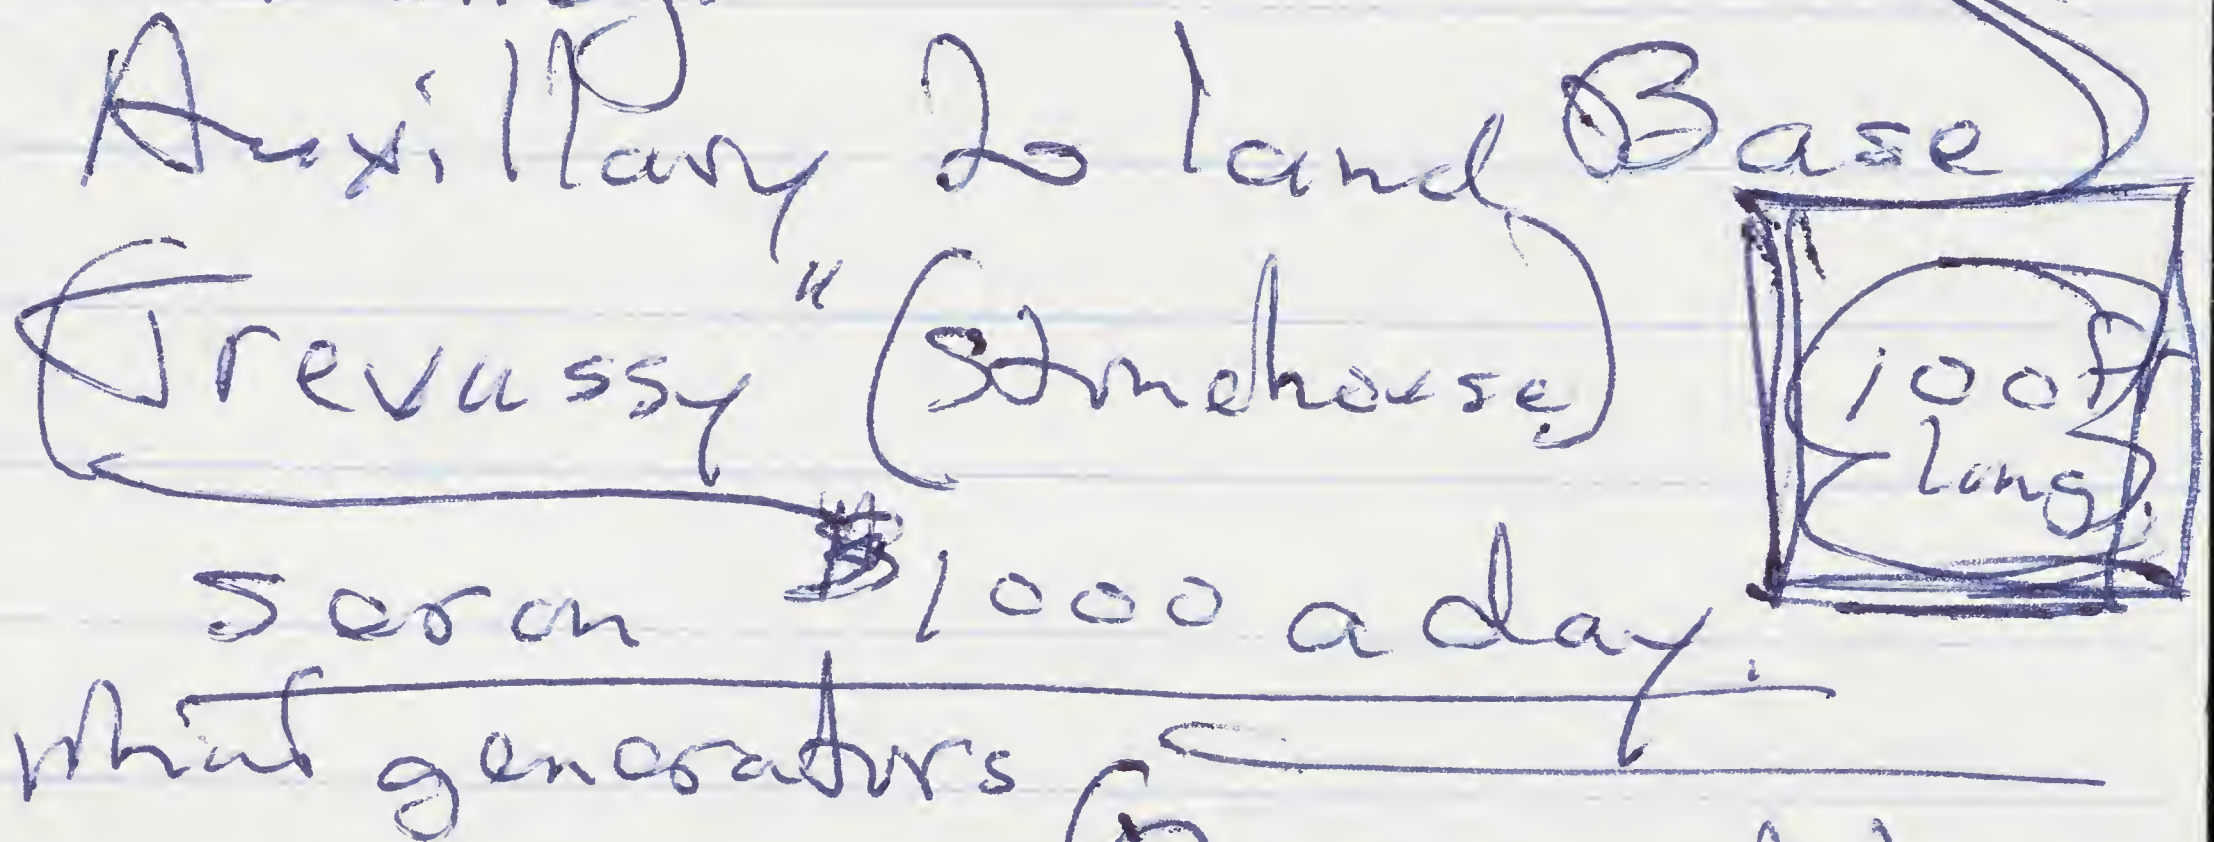 Auxillary to land Base
Trevussy" (Stonehouse)
100ft
long
$1000 a day.
what generators